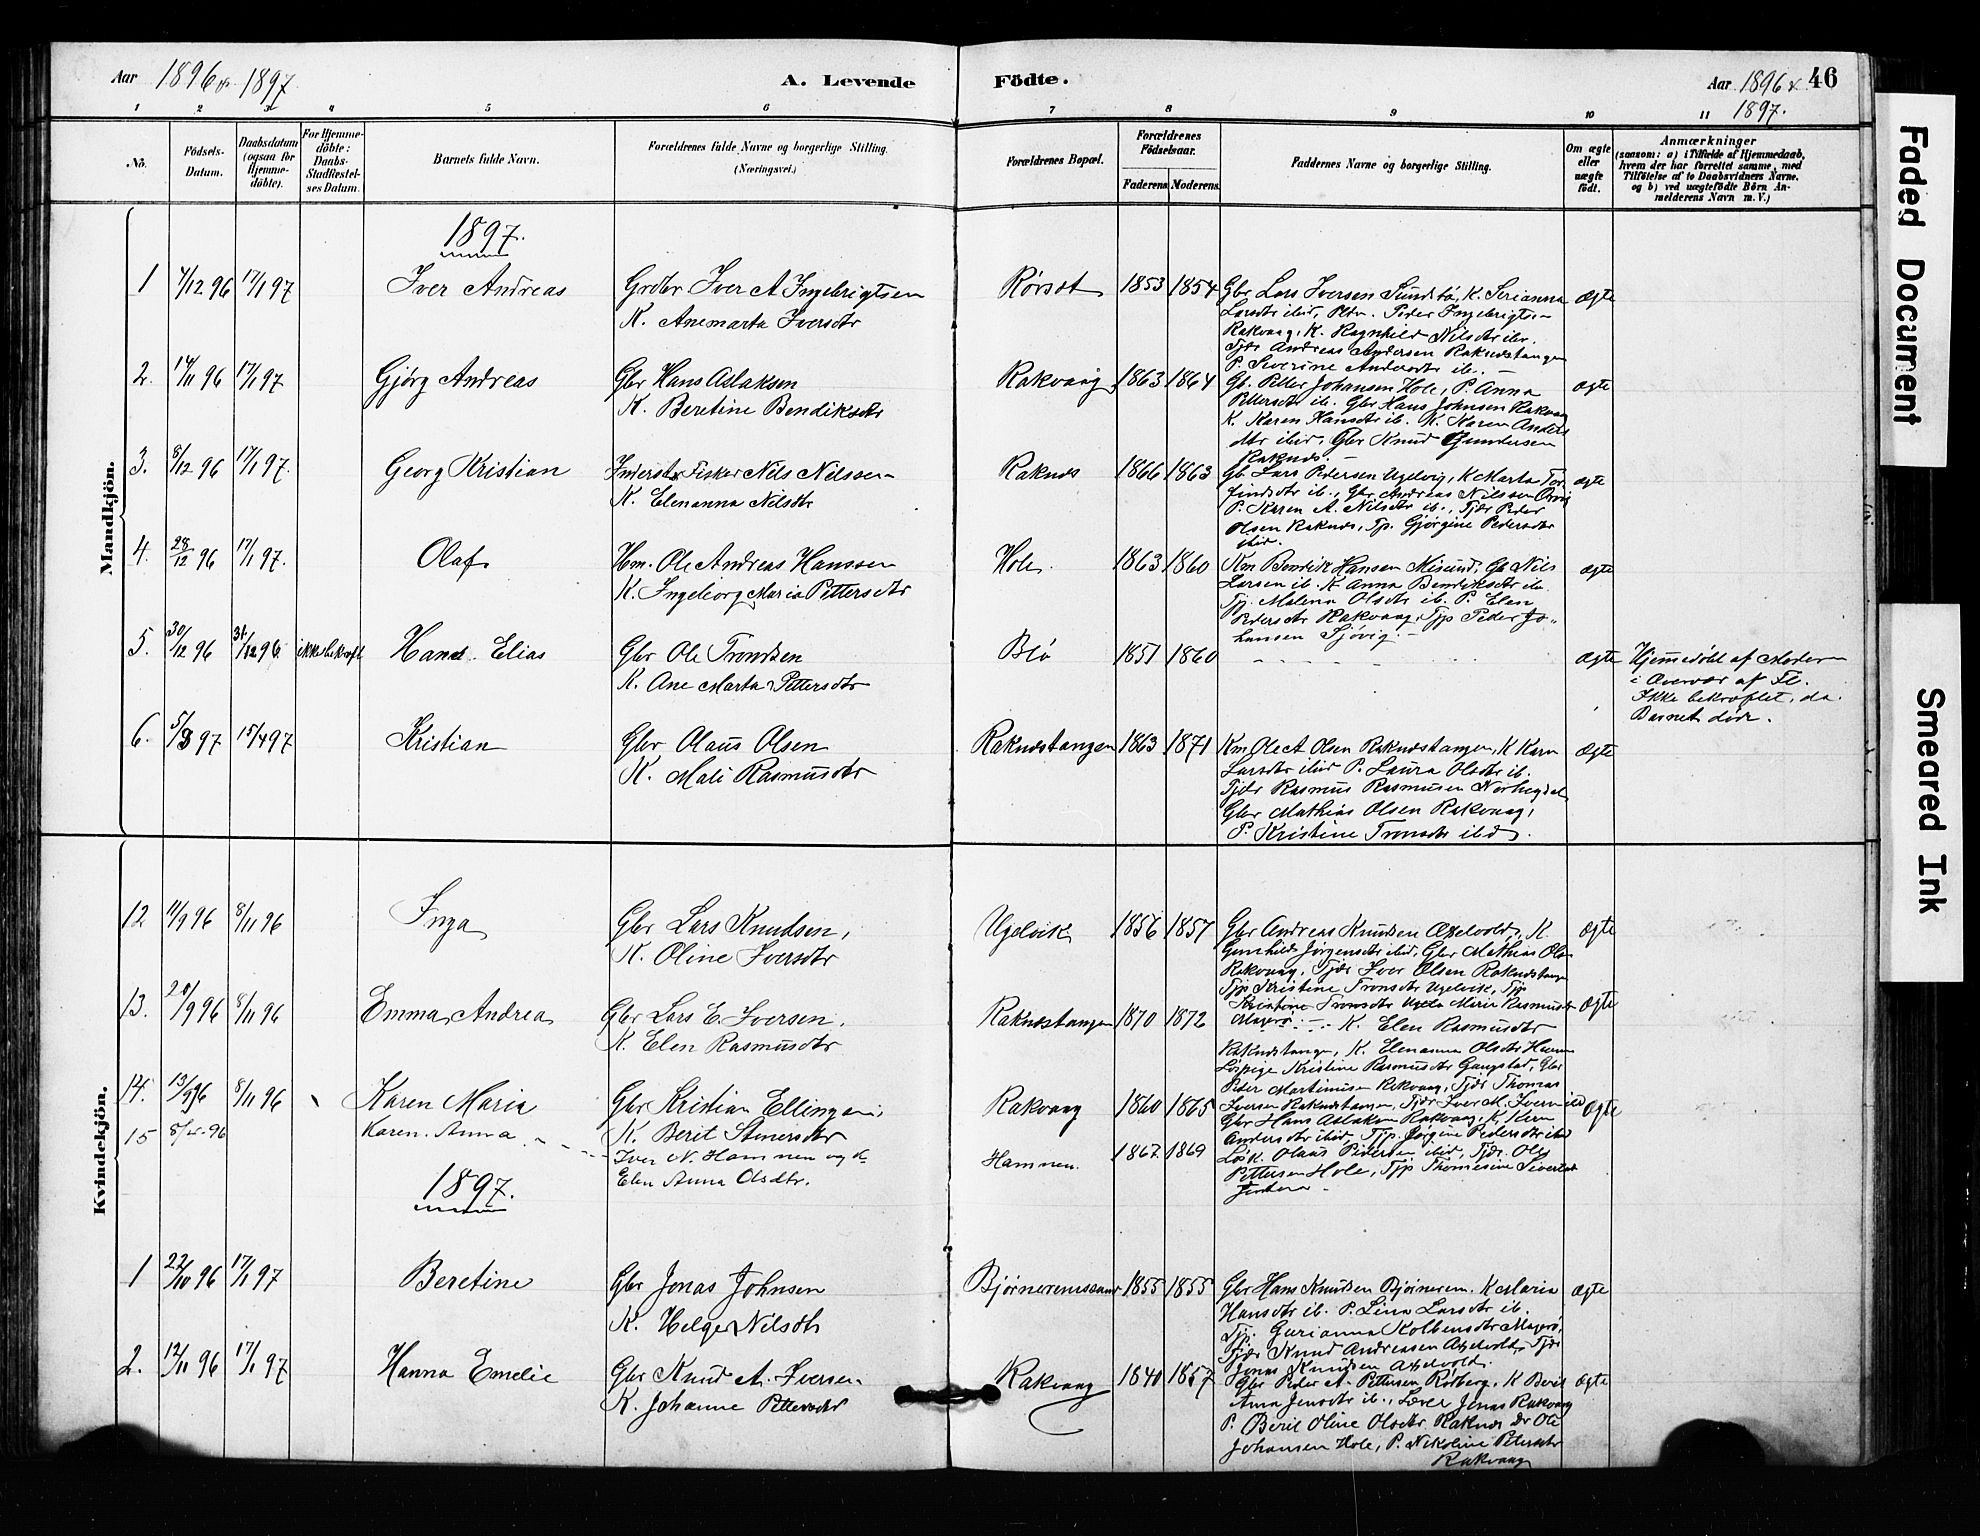 Aar 1896 & 1897
A. Levende
Födte.
Aar 1896 &
1897.
46
1 2 3 4 5 6 7 8 9 10 11
No.
Födsels-
Datum.
Daabsdatum
(ogsaa for
Hjemme-
döbte).
For Hjemme-
döbte:
Daabs-
Stadfæstel-
ses Datum.
Barnets fulde Navn.
Forældrenes fulde Navne og borgerlige Stilling.
(Næringsvei.)
Forældrenes Bopæl.
Forældrenes
Födselsaar.
Faderens
Moderens
Faddernes Navne og borgerlige Stilling.
Om ægte
eller
uægte
födt.
Anmærkninger
(saasom: a) i Tilfælde af Hjemmedaab,
hvem der har forrettet samme, med
Tilföielse af to Daabsvidners Navne.
og b) ved uægtefödte Börn An-
melderens Navn m. V.)
Mandkjön.
1897.
1 7/12 96 17/1 97 Iver Andreas Grdbr Iver A Ingebrigtsen Rørset 1853 1854 Gbr Lars Iversen Sundbø, K. Serianna ægte
K. Anemarta Iversdtr
Larsdtr ibid, Peder Ingebrigtsen
Rakvaag, K. Ragnhild Nilsdtr ibr.
Tjdr Andreas Andersen Raknestangen
P. Severine Andersdtr ib.
2. 14/11 96 17/1 97 Gjørg Andreas Gbr Hans Aslaksen Rakvaag 1863 1864 Gb. Petter Johansen Hole, P. Anna ægte
K. Beretine Bendiksdtr
Pettersdtr ib. Gbr Hans Johnsen Rakvaag
K. Karen Hansdtr ib. K. Karen Anders
dtr ibid, Gbr Knud Gundersen
Raknes.
3. 8/12 96 17/1 97. Georg Kristian Inderst Fisker Nils Nilssen Raknes 1866 1863 Gb Lars Pedersen Ugelvig, K Marta Tor ægte
K. Elenanna Nilsdtr
findsdtr ib., Gbr Andreas Nilssen
P. Karen A. Nilsdtr ib., Tjdr Peder
Olsen Raknes, Tp. Gjørgine Pedersdtr
ibid.
4. 28/12 96 17/1 97. Olaf Hm. Ole Andreas Hanssen Hole 1863 1860 Km Bendik Hansen Misund, Gb Nils ægte
K. Ingeborg Maria Pettersdtr
Larsen ib. K Anna Bendiksdtr ib
Tp. Malena Olsdtr ib. P. Elen
Pedersdtr Rakvaag, Tjp Peder Jo-
hansen Sjøvig.
5. 30/12 96 31/12 96 ikke bekræft Hans Elias Gbr Ole Trondsen Blø 1851 1860 ægte Hjemmedøbt af Moderen
K. Ane Marta Pettersdtr
i Overvær af Fl.
Ikke bekræftet, da
Barnet døde.
6. 5/3 97 15/4 97 Kristian Gbr Olaus Olsen Raknestangen 1863 1871 Km Ole A Olsen Raknestangen, K Karn ægte
K. Mali Rasmusdtr
Larsdtr ibid P. Laura Olsdtr ib.
Tjdr Rasmus Rasmusen
Gbr Mathias Olsen Rakvaag,
P. Kristine Tronsdtr ibid.
Kvindekjön.
12 11/9 96 8/11 96 Inga Gbr Lars Knudsen, Ugelvik 1856 1857 Gbr Andreas Knudsen Axelvold, K. ægte
K. Oline Iversdtr
Gunhild Jørgensdtr ibid, Gbr Mathias Ols
Rakvaag, Tjdr Iver Olsen Raknestangen
Tjp Kristine Tronsdtr Ugelvik, Tjp
13. 20/9 96 8/11 96 Emma Andrea Gbr Lars E. Iversen, Raknestangen 1870 1872 Kristine Tronsdtr Marie Rasmusdtr ægte
K. Elen Rasmusdtr
Magerø K. Elen Rasmusdtr
Raknestange, K. Elenanna Olsdtr
Kristine Rasmusdtr Gangstad, Gbr
Peder Martinusen Rakvaag, Tjdr Thomas
14. 13/9 96 8/11 96 Karen Maria Gbr Kristian Ellingsen, Rakvaag 1860 1865 Iversen Raknestangen, Tjdr Iver M. Iversen ibid ægte
K. Berit Steinersdtr
Gbr Hans Aslaksen Rakvaag, K. Karen
15 8/ 96 Karen Anna Iver N. Hammen og K Hamnen. 1867 1869
Elen Anna Olsdtr.
Andersdtr ibid, Tjp. Jørgine Pedersdtr ibid
Løsk. Olaus Pedersen ibid, Tjdr. Ole
Pettersen Hole, Tjp Thomesine Sivertsd
1897.
1 22/10 96 17/1 97 Beretine Gbr Jonas Johnsen Bjørneremssaur 1855 1855 Gbr Hans Knudsen Bjørnerem. K Maria ægte
K. Helger Nilsdtr
Hansdtr ib. P. Lina Larsdtr ib.
Tjp. Gurianna Kolbensdtr Magerø,
Tjdr Knud Andreasen Axelvold, Tjdr
Jonas Knudsen Axelvold.
2. 12/11 96 17/1 97 Hanna Emelie Gbr Knud A. Iversen Rakvaag 1840 1857 Gbr Peder A. Pettersen Rødberg, K Berit ægte
K. Johanne Pettersdtr
Anna Jensdtr ib., Lærer Jonas Rakvaag
P. Berit Oline Olsdtr Raknes Dr Ole
Johansen Hole, P. Nikoline Petersdtr
Rakvaag
Faded Document
Smeared Ink